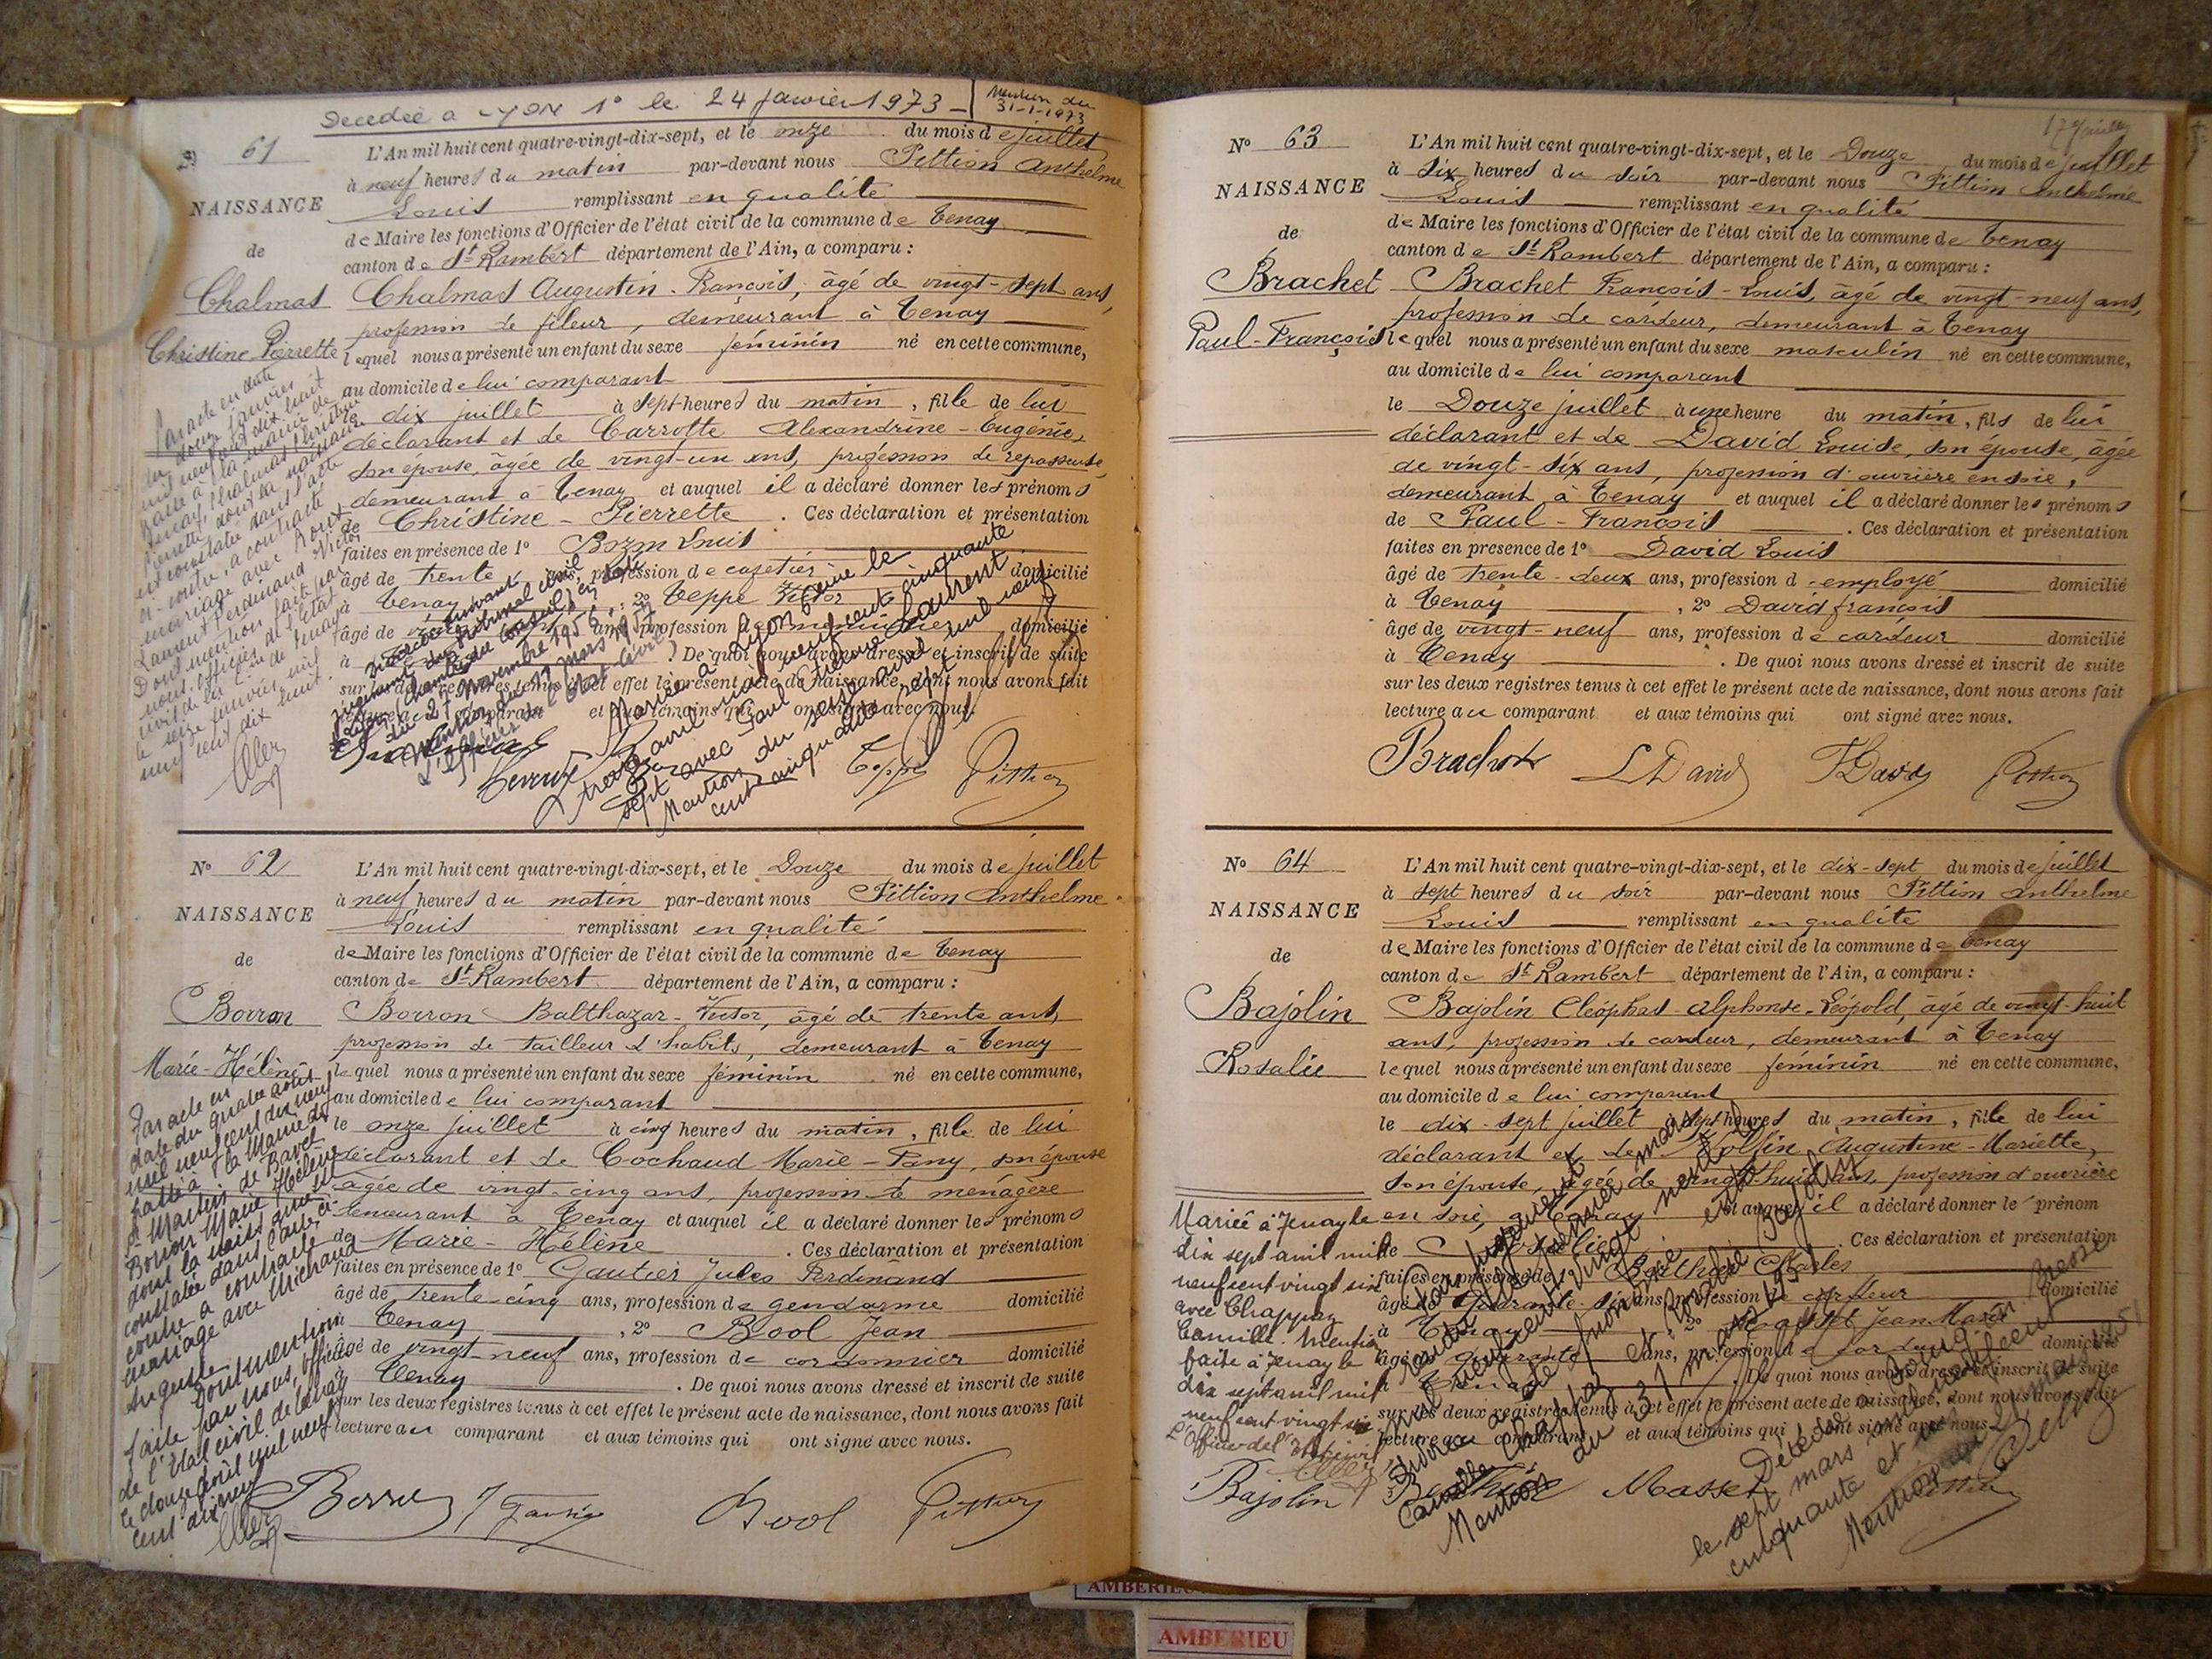 Decedée a LYON 1° le 24 Janvier 1973 - Mention du
31-1-1973
61
NAISSANCE
de
Chalmas
Christine Pierrette
L'An mil huit cent quatre-vingt-dix-sept, et le onze du mois de juillet
à neuf heures du matin par-devant nous Pittion Anthelme
Louis remplissant en qualité
de Maire les fonctions d'Officier de l'état civil de la commune de Tenay
canton de St Rambert département de l'Ain, a comparu :
Chalmas Augustin-François, âgé de vingt-sept ans,
profession de fileur, demeurant à Tenay
lequel nous a présenté un enfant du sexe féminin né en cette commune,
au domicile de lui comparant
le dix juillet à sept heures du matin, fille de lui
déclarant et de Carrotte Alexandrine-Eugénie,
son épouse, âgée de vingt-un ans, profession de repasseuse
demeurant à Tenay et auquel il a déclaré donner les prénoms
de Christine-Pierrette. Ces déclaration et présentation
faites en présence de 1° Louis
âgé de trente ans, profession de cafetier domicilié
à Tenay, 2° Teppe Victor
âgé de ans, profession de domicilié
à . De quoi nous avons dressé et inscrit de suite
sur les deux registres tenus à cet effet le présent acte de naissance, dont nous avons fait
lecture au comparant et aux témoins qui ont signé avec nous.
Par acte en date
du douze janvier
mil neuf cent dix huit
faite à la mairie de
Tenay, Chalmas Christine
Pierrette, dont la naissance
est constatée dans l'acte
ci-contre, a contracté
mariage avec Roux
Laurent Ferdinand Victor
Dont mention faite par
nous, officier de l'Etat
civil de la Cne de Tenay
le seize janvier mil
neuf cent dix huit.
Divorcée suivant
jugement du Tribunal civil
de Lyon (chambre du conseil) en date
du 27 Novembre 1956
Mention du 19 mars 1957
L'officier de l'état civil
Mariée à Lyon 6eme le
treize avril mil neuf cent cinquante
sept avec Paul Etienne Laurent
Mention du seize avril mil neuf
cent cinquante sept
Teppe Pittion
No 62
NAISSANCE
de
Borron
Marie-Hélène
L'An mil huit cent quatre-vingt-dix-sept, et le Douze du mois de juillet
à neuf heures du matin par-devant nous Pittion Anthelme
Louis remplissant en qualité
de Maire les fonctions d'Officier de l'état civil de la commune de Tenay
canton de St Rambert département de l'Ain, a comparu :
Borron Balthazar-Victor, âgé de trente ans,
profession de tailleur d'habits, demeurant à Tenay
lequel nous a présenté un enfant du sexe féminin né en cette commune,
au domicile de lui comparant
le onze juillet à cinq heures du matin, fille de lui
déclarant et de Cochaud Marie-Fany, son épouse
âgée de vingt-cinq ans, profession de ménagère
demeurant à Tenay et auquel il a déclaré donner les prénoms
de Marie-Hélène. Ces déclaration et présentation
faites en présence de 1° Gautier Jules Ferdinand
âgé de trente-cinq ans, profession de gendarme domicilié
à Tenay, 2° Bool Jean
âgé de vingt-neuf ans, profession de cordonnier domicilié
à Tenay. De quoi nous avons dressé et inscrit de suite
sur les deux registres tenus à cet effet le présent acte de naissance, dont nous avons fait
lecture au comparant et aux témoins qui ont signé avec nous.
Par acte en
date du quatre août
mil neuf cent dix neuf
passé à la Mairie de
St Martin de Bavel
Borron Marie Hélène
dont la naissance est
constatée dans l'acte ci-
contre a contracté
mariage avec Michaud
Auguste
Dont mention
faite par nous, officier
de l'Etat civil de Tenay
le douze août mil neuf
cent dix neuf
Borron J Gautier Bool Pittion
No 63
NAISSANCE
de
Brachet
Paul-François
17 Juillet
L'An mil huit cent quatre-vingt-dix-sept, et le Douze du mois de juillet
à six heures du soir par-devant nous Pittion Anthelme
Louis remplissant en qualité
de Maire les fonctions d'Officier de l'état civil de la commune de Tenay
canton de St Rambert département de l'Ain, a comparu :
Brachet François-Louis, âgé de vingt-neuf ans,
profession de cardeur, demeurant à Tenay
lequel nous a présenté un enfant du sexe masculin né en cette commune,
au domicile de lui comparant
le Douze juillet à une heure du matin, fils de lui
déclarant et de David Louise, son épouse, âgée
de vingt-six ans, profession d'ouvrière en soie,
demeurant à Tenay et auquel il a déclaré donner les prénoms
de Paul-François. Ces déclaration et présentation
faites en presence de 1° David Louis
âgé de trente-deux ans, profession d'employé domicilié
à Tenay, 2° David françois
âgé de vingt-neuf ans, profession de cardeur domicilié
à Tenay. De quoi nous avons dressé et inscrit de suite
sur les deux registres tenus à cet effet le présent acte de naissance, dont nous avons fait
lecture au comparant et aux témoins qui ont signé avec nous.
Brachet L David F David Pittion
No 64
NAISSANCE
de
Bajolin
Rosalie
L'An mil huit cent quatre-vingt-dix-sept, et le dix-sept du mois de juillet
à sept heures du soir par-devant nous Pittion Anthelme
Louis remplissant en qualité
de Maire les fonctions d'Officier de l'état civil de la commune de Tenay
canton de St Rambert département de l'Ain, a comparu :
Bajolin Cléophas-Alphonse-Léopold, âgé de vingt-huit
ans, profession de cardeur, demeurant à Tenay
lequel nous a présenté un enfant du sexe féminin né en cette commune,
au domicile de lui comparant
le dix-sept juillet à sept heures du matin, fille de lui
déclarant et de Augustine-Mariette,
son épouse, âgée de vingt-huit ans, profession d'ouvrière
en soie, à Tenay et auquel il a déclaré donner le prénom
de Rosalie. Ces déclaration et présentation
faites en présence de 1° Berthier Charles
âgé de quarante-six ans, profession de cardeur domicilié
à Tenay, 2° Masset Jean Marie
âgé de quarante ans, profession de domicilié
à Tenay. De quoi nous avons dressé et inscrit de suite
sur les deux registres tenus à cet effet le présent acte de naissance, dont nous avons fait
lecture au comparant et aux témoins qui ont signé avec nous.
Mariée à Tenay le
dix sept avril mil
neuf cent vingt six
avec Chappaz
Camille. Mention
faite à Tenay le
dix sept avril mil
neuf cent vingt six
L'Officier de l'Etat civil
Par jugement
mil neuf cent vingt neuf
divorce
Camille Chappaz et Rosalie Bajolin
Mention du 31 mars 1951
Décédée à Bourg Bresse
le sept mars mil neuf cent
cinquante et un
Mention 1951
Bajolin Berthier Masset Pittion
AMBERIEU
AMBERIEU